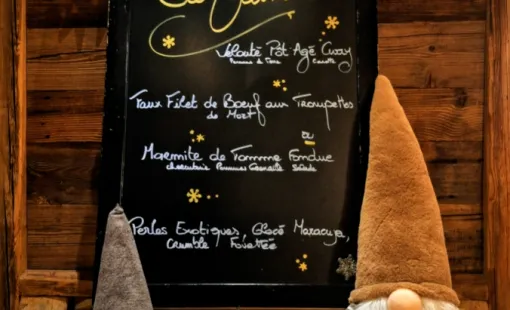 Velouté Pot Agé Curry
Pommes de Terre Carotte
Faux Filet de Boeuf aux Trompettes
de Mort
ou
Marmite de Tomme Fondue
charcuterie Pommes Grenaille Salade
Perles Exotiques, Glacé Maracuja,
Crumble